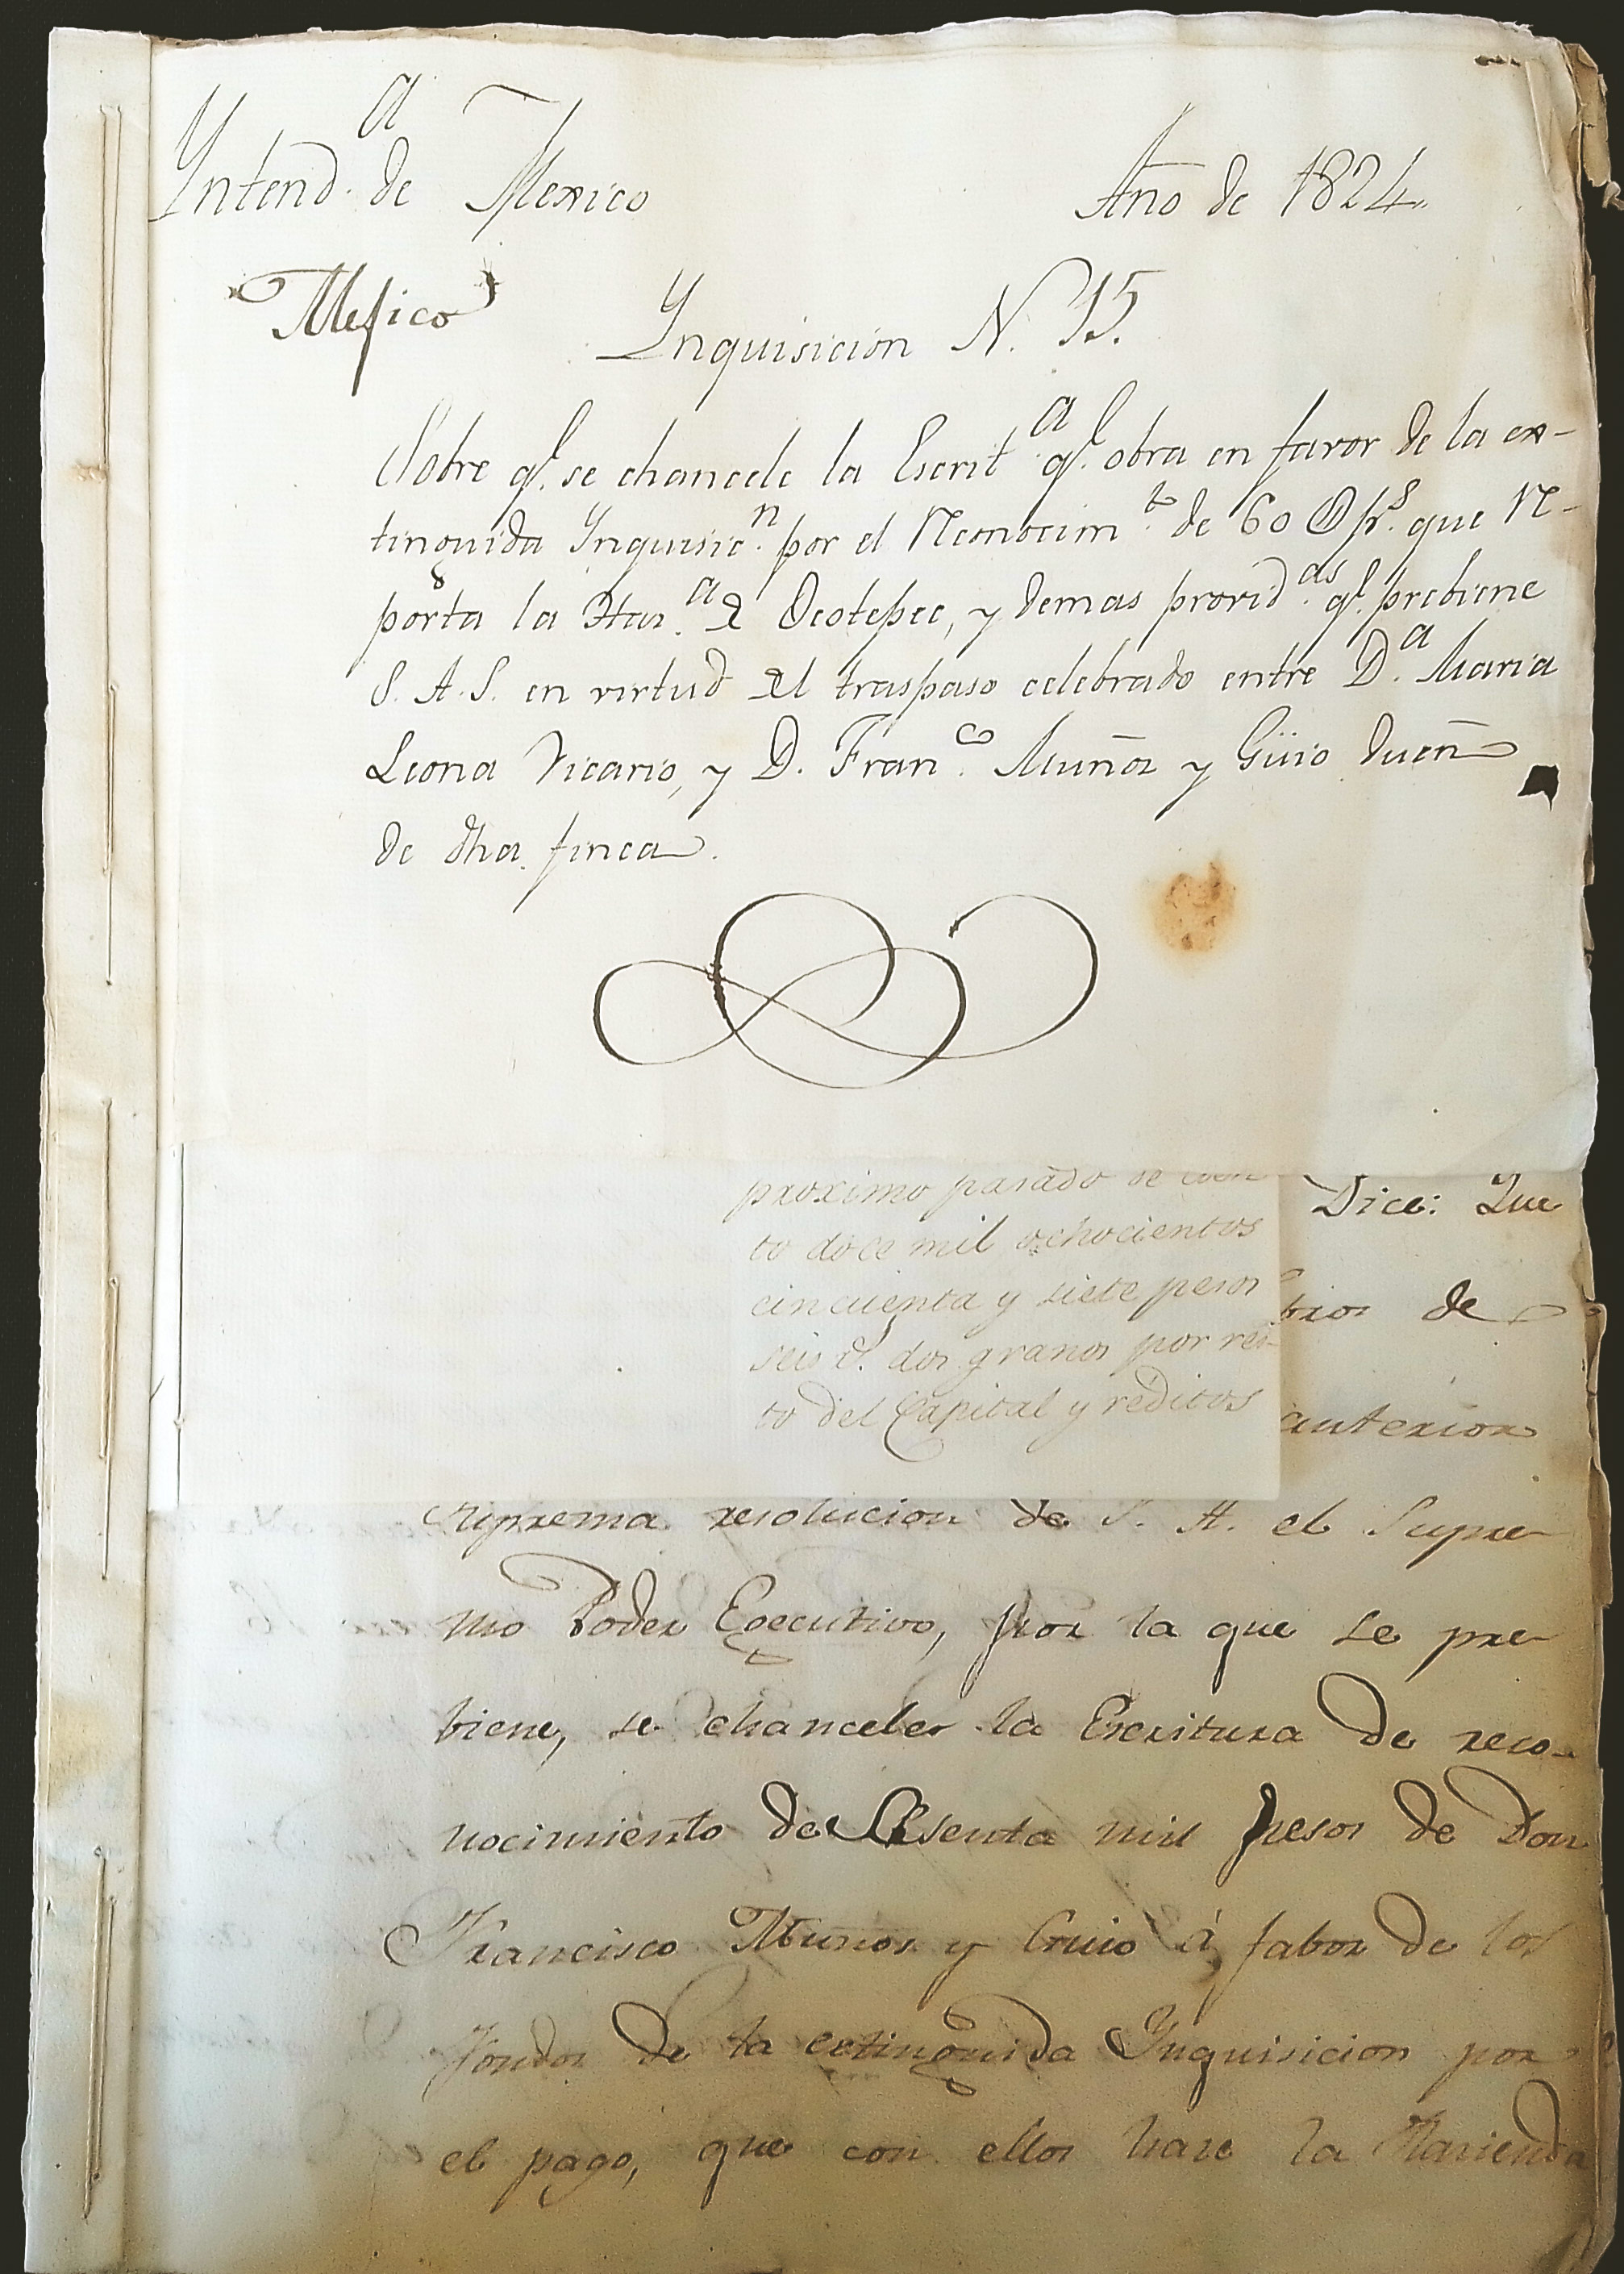 Yntend.a de Mexico
Año de 1824.
Mexico
Ynquisicion N. 15.
Sobre q.e se chancele la Escrit.a q.e obra en favor de la ex-
tinguida Ynquisic.n por el Reconocim.to de 60 @ p.s que re-
porta la Haz.a de Ocotepec, y demas provid.as q.e prebiene
S. A. S. en virtud del traspaso celebrado entre D.a Maria
Leona Vicario, y D. Fran.co Muñoz y Güio dueño
de dha. finca.
proximo pasado de cien
to doce mil ochocientos
cincuenta y siete pesos
seis r.s dos granos por res-
to del Capital y réditos
Dice: Que
de
anterior
suprema resolucion de S. A. el Supre-
mo Poder Egecutivo, por la que se pre-
biene, se chancele la Escritura de reco-
nocimiento de Sesenta mil pesos de Don
Francisco Munos y Gruio á fabor de los
fondos de la extinguida Ynquisicion por
el pago, que con ellos hace la Hacienda